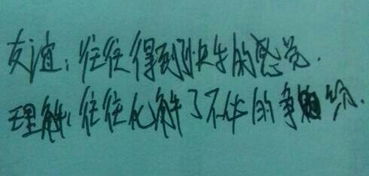 友谊:往往得到快乐的感觉.
理解:往往化解了不休的争纷.